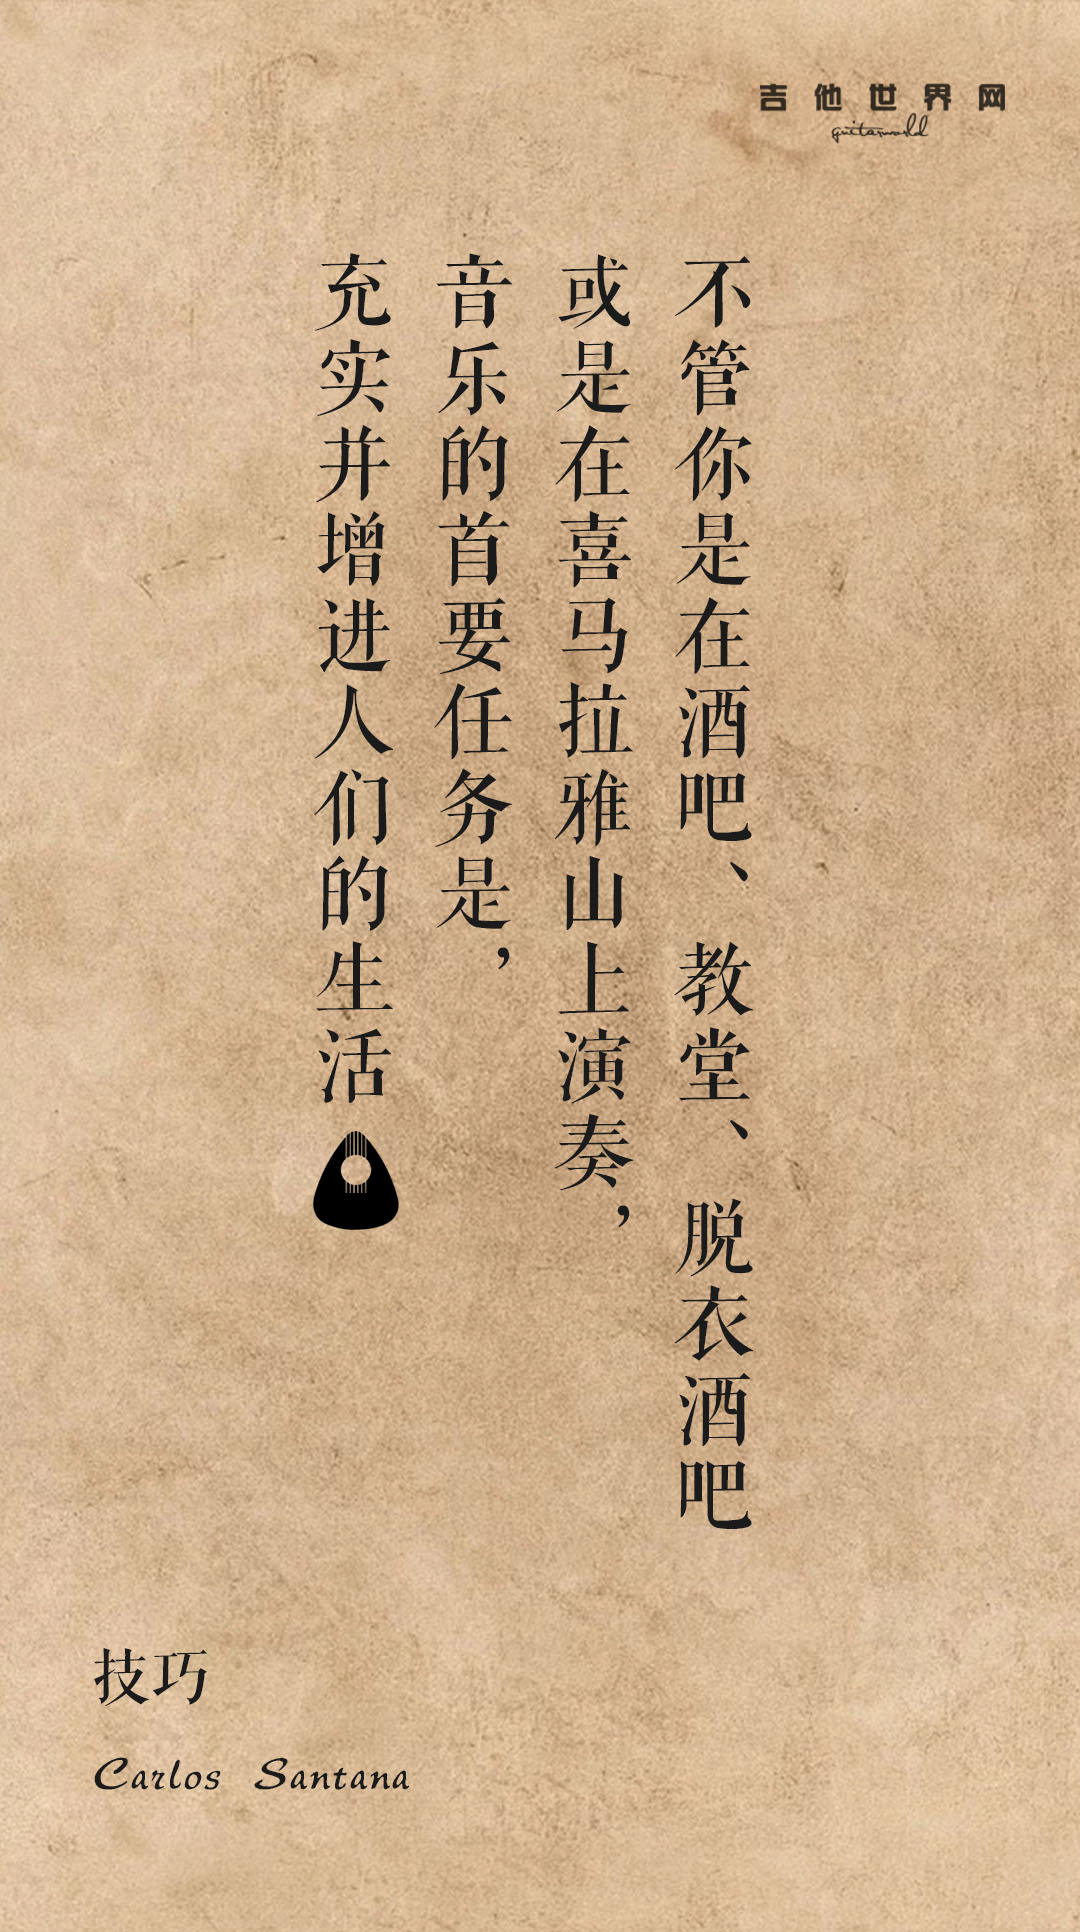 吉他世界网
guitarworld
不管你是在酒吧、教堂、脱衣酒吧
或是在喜马拉雅山上演奏，
音乐的首要任务是，
充实并增进人们的生活
技巧
Carlos Santana